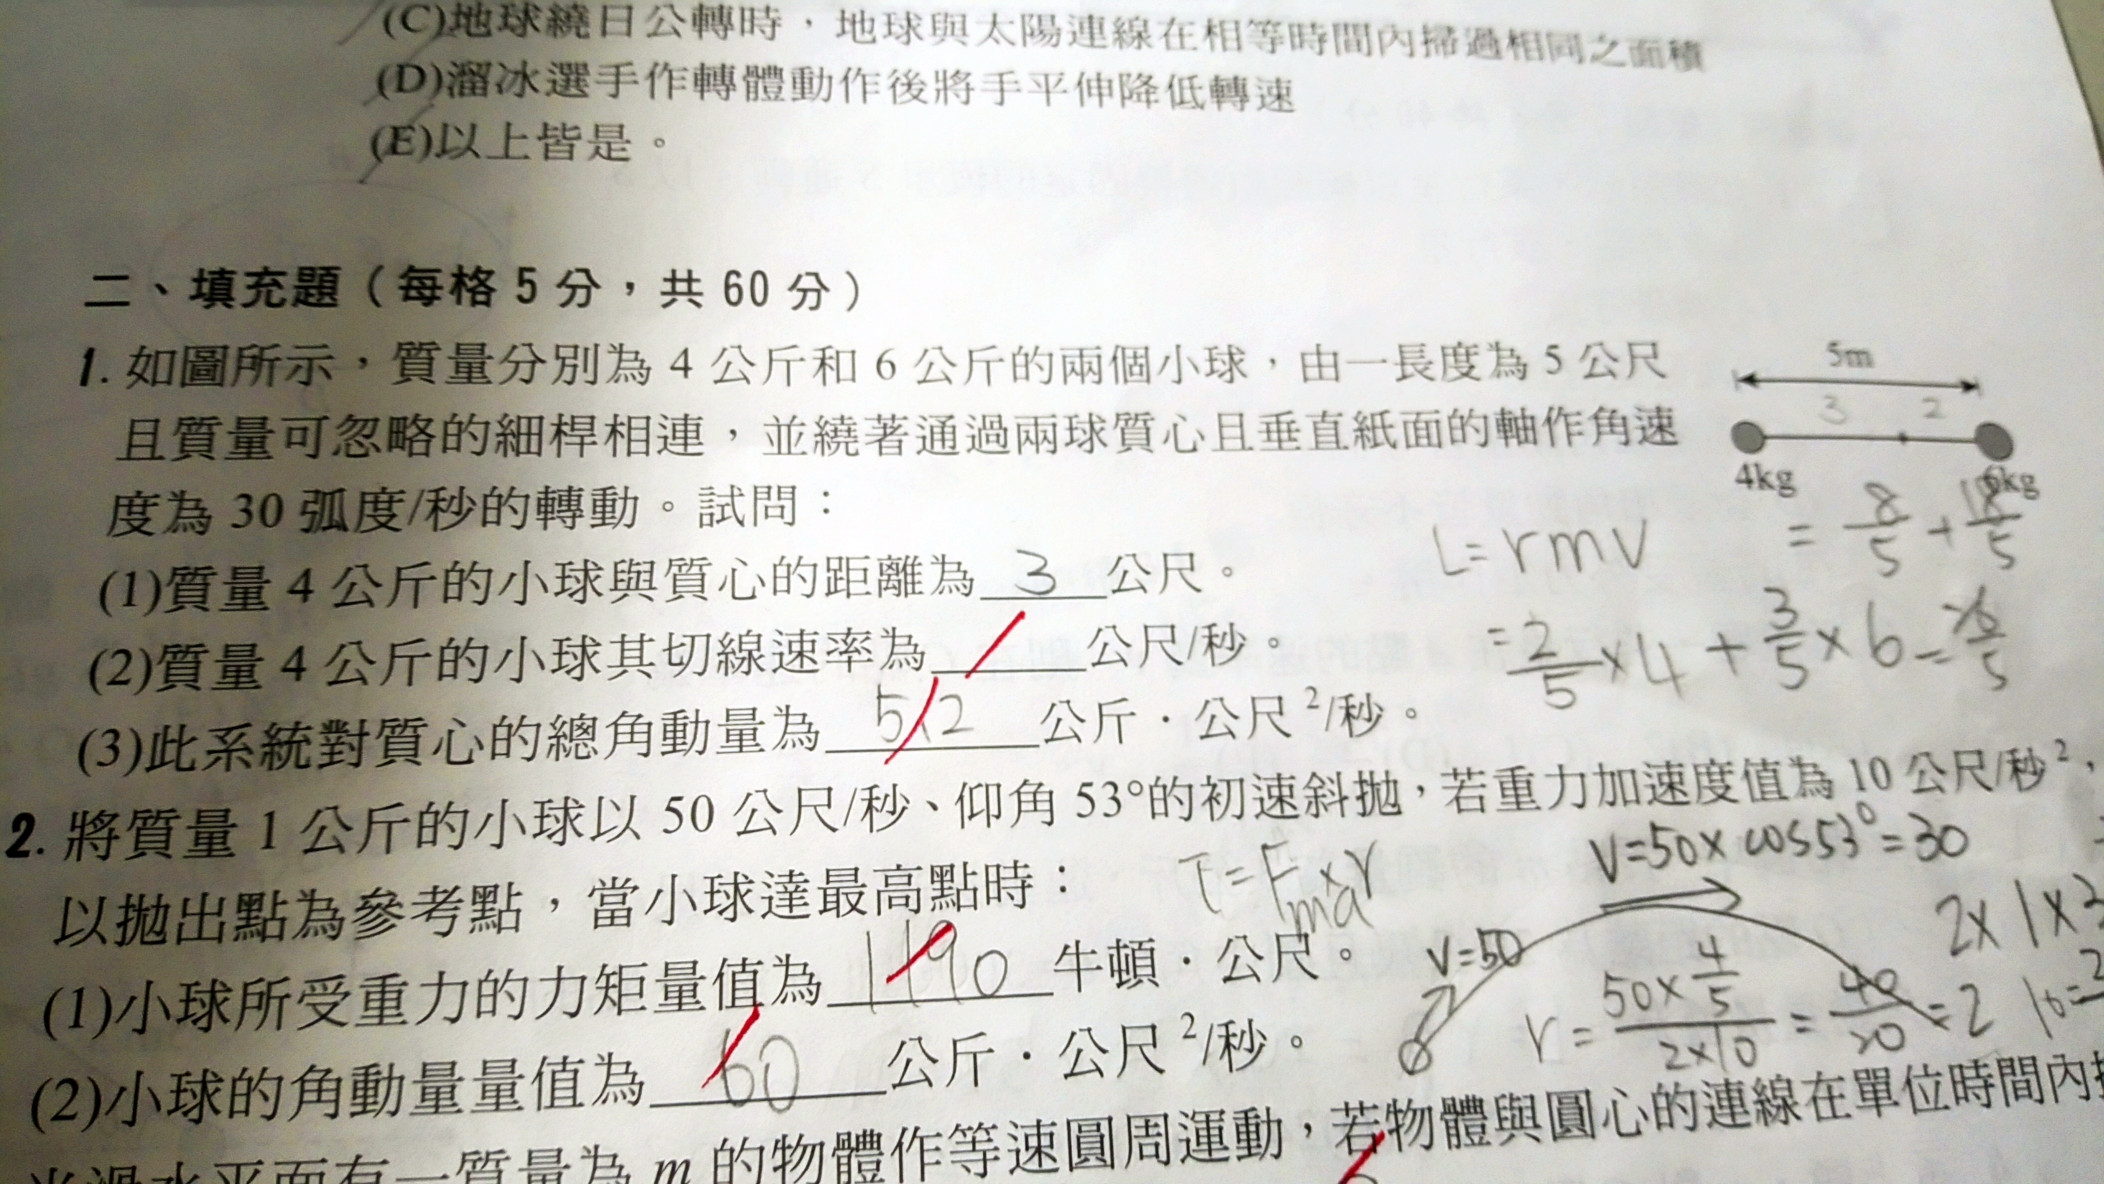 (C)地球繞日公轉時，地球與太陽連線在相等時間內掃過相同之面積
(D)溜冰選手作轉體動作後將手平伸降低轉速
(E)以上皆是。
二、填充題（每格 5 分，共 60 分）
1. 如圖所示，質量分別為 4 公斤和 6 公斤的兩個小球，由一長度為 5 公尺
且質量可忽略的細桿相連，並繞著通過兩球質心且垂直紙面的軸作角速
度為 30 弧度/秒的轉動。試問：
5m
3 2
4kg 6kg
(1)質量 4 公斤的小球與質心的距離為 3 公尺。
(2)質量 4 公斤的小球其切線速率為 公尺/秒。
(3)此系統對質心的總角動量為 5.2 公斤．公尺²/秒。
L=rmv = 8/5 + 18/5
= 2/5 ×4 + 3/5 ×6 =
2. 將質量 1 公斤的小球以 50 公尺/秒、仰角 53°的初速斜拋，若重力加速度值為 10 公尺/秒²，
以拋出點為參考點，當小球達最高點時：
τ=F×r
ma
V=50×cos53°=30
(1)小球所受重力的力矩量值為 1190 牛頓．公尺。
V=50
r= 50×4/5 / 2×10 = 40/20 =2
2×1×3
(2)小球的角動量量值為 60 公斤．公尺²/秒。
有一質量為 m 的物體作等速圓周運動，若物體與圓心的連線在單位時間內